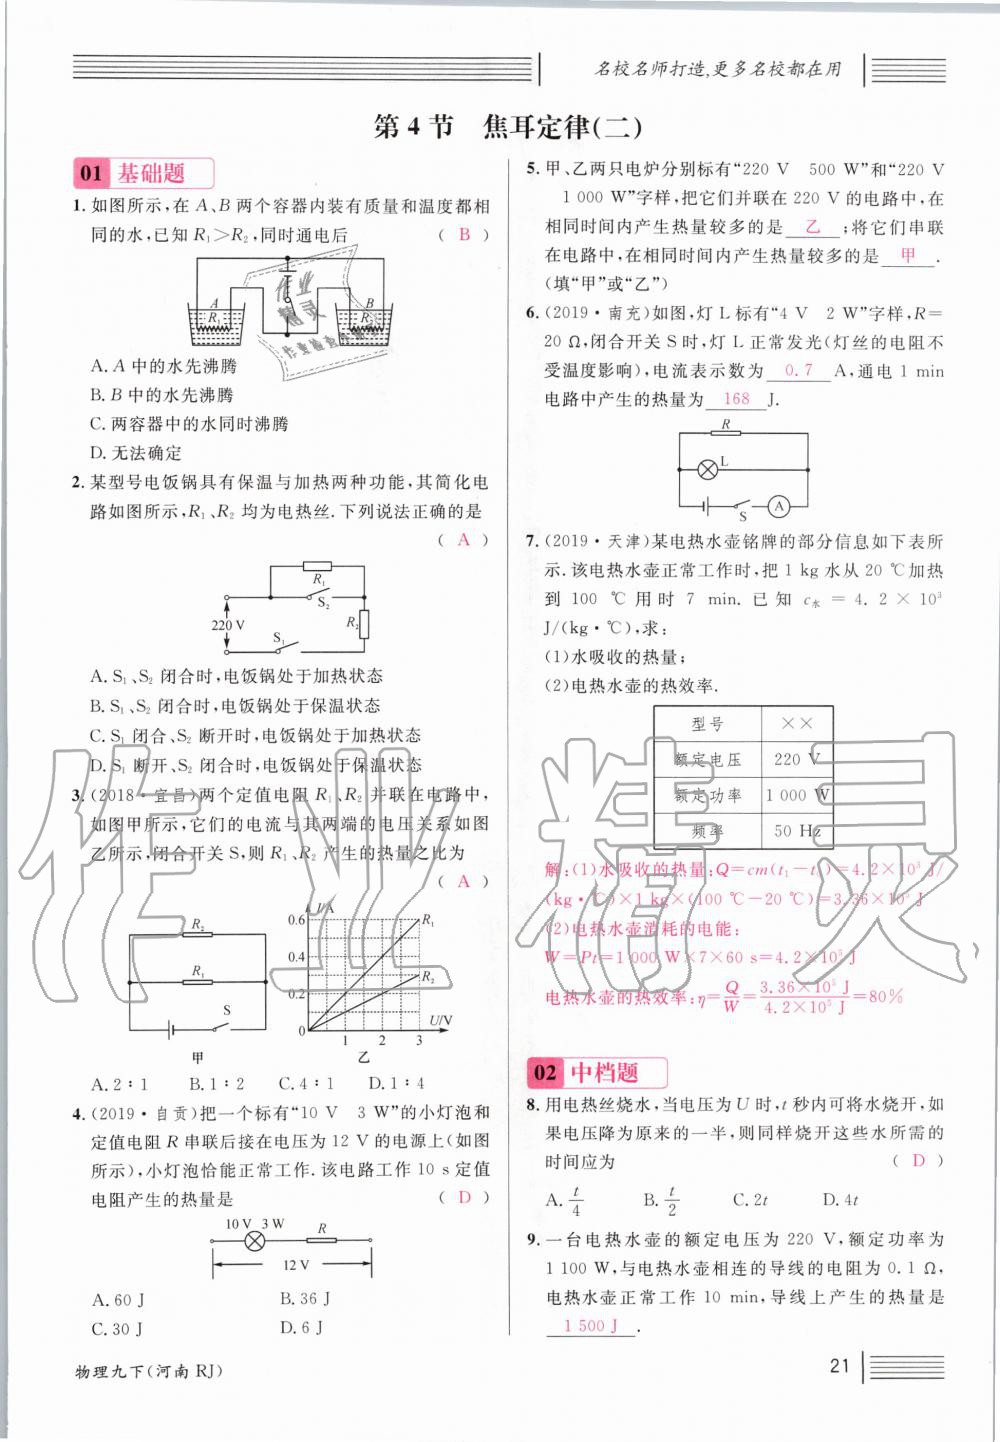 名校名师打造,更多名校都在用
第4节 焦耳定律(二)
01 基础题
1. 如图所示,在 A、B 两个容器内装有质量和温度都相
同的水,已知 R₁>R₂,同时通电后 ( B )
A B
R₁ R₂
A. A 中的水先沸腾
B. B 中的水先沸腾
C. 两容器中的水同时沸腾
D. 无法确定
2. 某型号电饭锅具有保温与加热两种功能,其简化电
路如图所示,R₁、R₂ 均为电热丝.下列说法正确的是
( A )
R₁
S₂
220 V
R₂
S₁
A. S₁、S₂ 闭合时,电饭锅处于加热状态
B. S₁、S₂ 闭合时,电饭锅处于保温状态
C. S₁ 闭合、S₂ 断开时,电饭锅处于加热状态
D. S₁ 断开、S₂ 闭合时,电饭锅处于保温状态
3. (2018·宜昌)两个定值电阻 R₁、R₂ 并联在电路中,
如图甲所示,它们的电流与其两端的电压关系如图
乙所示,闭合开关 S,则 R₁、R₂ 产生的热量之比为
( A )
R₂
R₁
S
甲
I/A
0.6
0.4
0.2
0
1 2 3
U/V
R₁
R₂
乙
A. 2∶1 B. 1∶2 C. 4∶1 D. 1∶4
4. (2019·自贡)把一个标有“10 V 3 W”的小灯泡和
定值电阻 R 串联后接在电压为 12 V 的电源上(如图
所示),小灯泡恰能正常工作.该电路工作 10 s 定值
电阻产生的热量是 ( D )
10 V 3 W R
12 V
A. 60 J B. 36 J
C. 30 J D. 6 J
5. 甲、乙两只电炉分别标有“220 V 500 W”和“220 V
1 000 W”字样,把它们并联在 220 V 的电路中,在
相同时间内产生热量较多的是 乙 ;将它们串联
在电路中,在相同时间内产生热量较多的是 甲 .
(填“甲”或“乙”)
6. (2019·南充)如图,灯 L 标有“4 V 2 W”字样,R=
20 Ω,闭合开关 S 时,灯 L 正常发光(灯丝的电阻不
受温度影响),电流表示数为 0.7 A,通电 1 min
电路中产生的热量为 168 J.
R
L
S
A
7. (2019·天津)某电热水壶铭牌的部分信息如下表所
示.该电热水壶正常工作时,把 1 kg 水从 20 ℃加热
到 100 ℃ 用时 7 min. 已知 c水 = 4.2×10³
J/(kg·℃),求:
(1)水吸收的热量;
(2)电热水壶的热效率.
型号 ××
额定电压 220 V
额定功率 1 000 W
频率 50 Hz
解:(1)水吸收的热量:Q=cm(t₁-t₀)=4.2×10³ J/
(kg·℃)×1 kg×(100 ℃-20 ℃)=3.36×10⁵ J
(2)电热水壶消耗的电能:
W=Pt=1 000 W×7×60 s=4.2×10⁵ J
电热水壶的热效率:η=Q/W=3.36×10⁵ J/4.2×10⁵ J=80%
02 中档题
8. 用电热丝烧水,当电压为 U 时,t 秒内可将水烧开,如
果电压降为原来的一半,则同样烧开这些水所需的
时间应为 ( D )
A. t/4 B. t/2 C. 2t D. 4t
9. 一台电热水壶的额定电压为 220 V,额定功率为
1 100 W,与电热水壶相连的导线的电阻为 0.1 Ω,
电热水壶正常工作 10 min,导线上产生的热量是
1 500 J .
物理九下(河南 RJ)
21
作业精灵